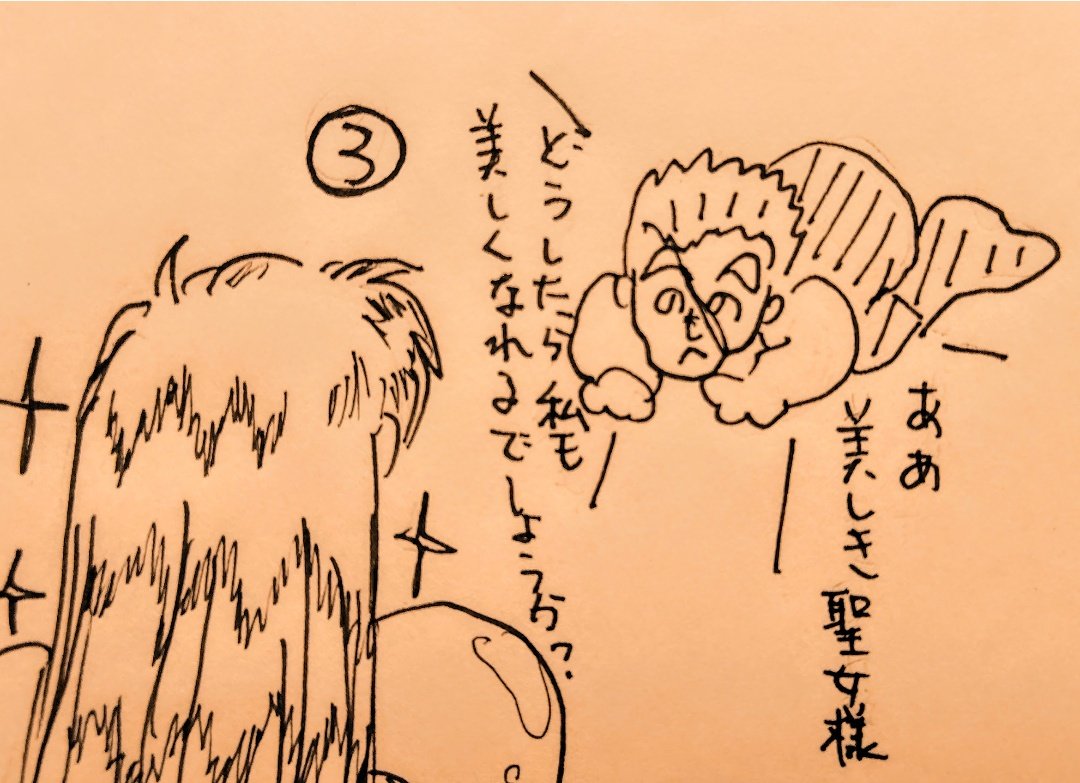 ③
ああ
美しき聖女様
どうしたら私も
美しくなれるでしょうか?